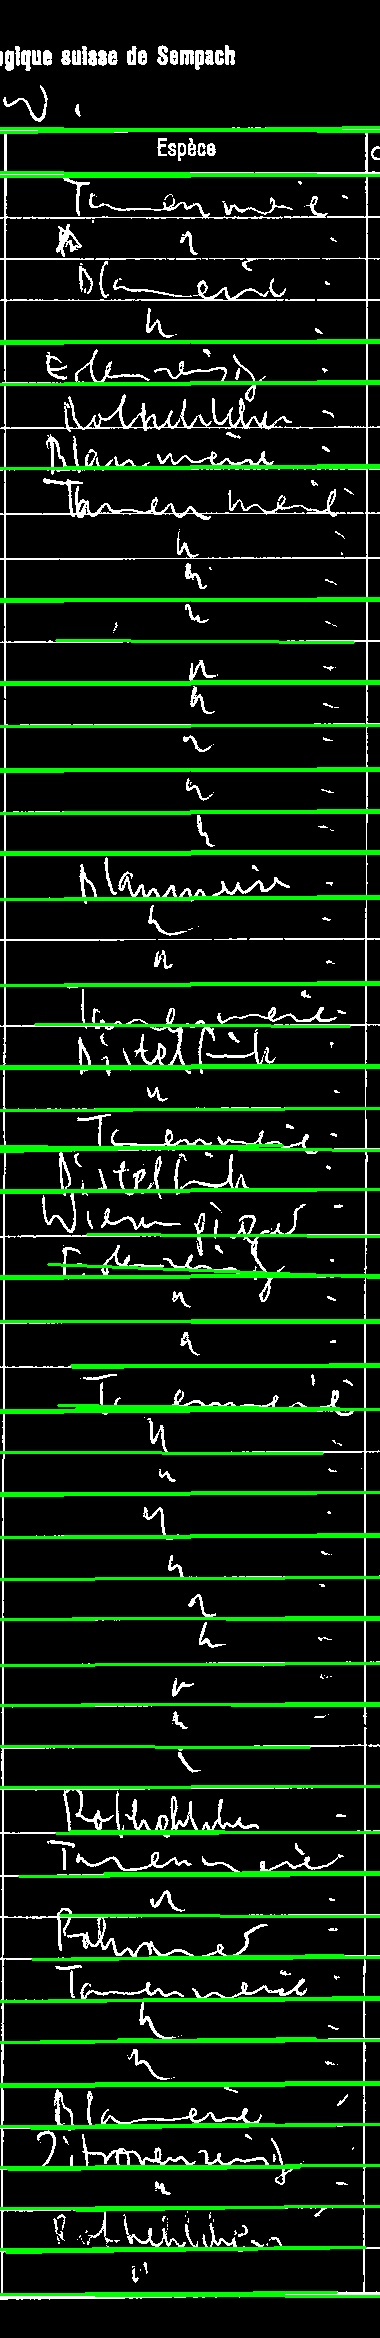 ogique suisse de Sempach
W.
Espèce
Tannenmeise
"
Blaumeise
"
Erlenzeisig
Rotkehlchen
Blaumeise
Tannenmeise
"
"
"
"
"
"
"
"
Blaumeise
"
"
Tannenmeise
Distelfink
"
Tannenmeise
Distelfink
Wiesenpieper
Erlenzeisig
"
"
Tannenmeise
"
"
"
"
"
"
"
"
"
Rotkehlchen
Tannenmeise
"
Tannenmeise
"
"
Blaumeise
Zitronenzeisig
"
Rotkehlchen
"